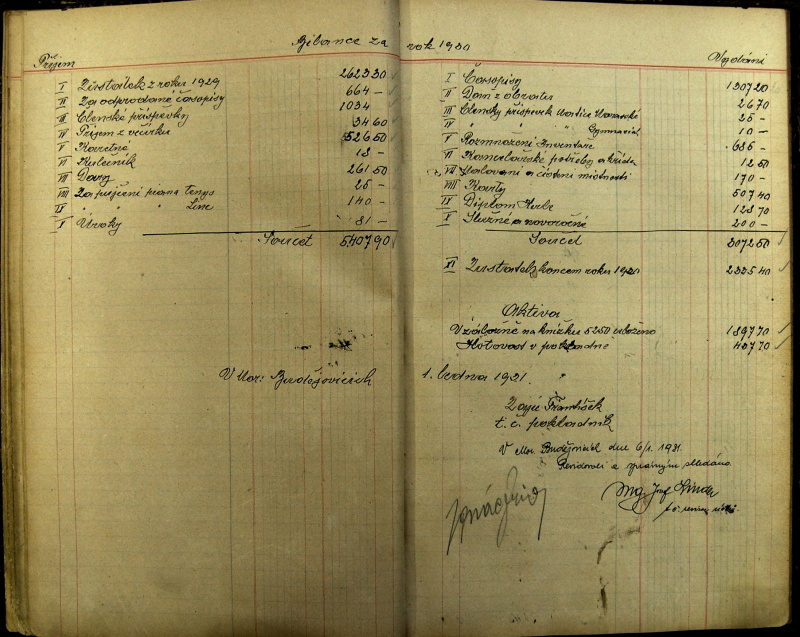 Bilance za rok 1930
Příjem
I Zůstatek z roku 1929 2623 30
II Za odprodané časopisy 664 —
III Členské příspěvky 1034
IV Příjem z večírku 34 60
V Karetné 526 50
VI Kulečník 18 —
VII Dary 261 50
VIII Za půjčení piana Tenys 25 —
IX " " Line 140 —
X Úroky 81 —
Součet 5407 90
Vydání
I Časopisy 1307 20
II Daň z obratu 26 70
III Členský příspěvek Matice 25 —
IV " " Gymnasial 10 —
V Rozmnožení Inventáře 685 —
VI Kancelářské potřeby a 12 50
VII Malování a čistění místností 170 —
VIII Karty 507 40
IX Diplom 128 70
X Služné a novoročné 200 —
Součet 3072 50
XI Zůstatek koncem roku 1930 2335 40
Aktiva
V záložně na knížku 5250 uloženo 1897 70
Hotovost v pokladně 437 70
V Mor: Budějovicích 1. ledna 1931.
Zajíc František
t. č. pokladník
V Mor. Budějovicích dne 6/1. 1931.
Revidoval a správným shledáno.
Mg. Josef
t. č.